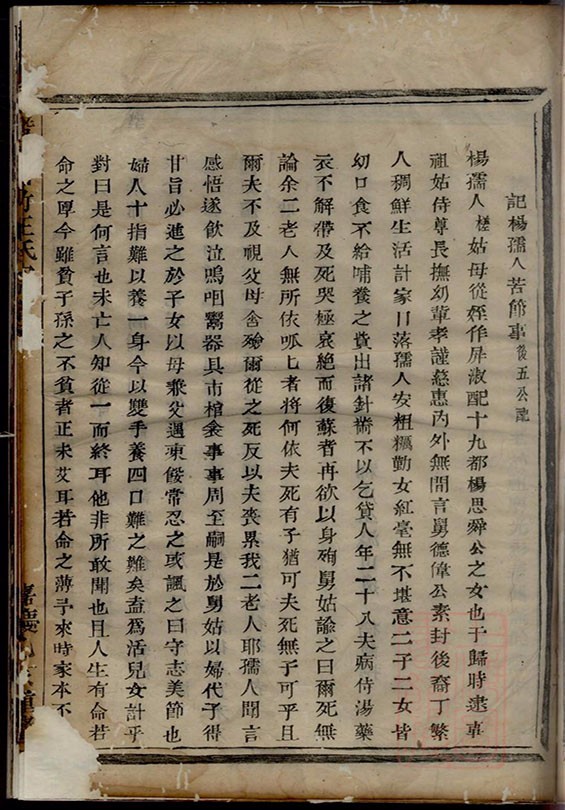 記楊孺人苦節事 後五公
楊孺人 姑母從姪作屏淑配十九都楊思舜公之女也于歸時逮事
祖姑侍尊長撫幼輩孝謹慈惠內外無間言舅德偉公素封後裔丁繁
人稠鮮生活計家日落孺人安粗糲勤女紅毫無不堪意二子二女皆
幼口食不給哺養之貲出諸針黹不以乞貸人年二十八夫病侍湯藥
衣不解帶及死哭極哀絕而復蘇者再欲以身殉舅姑諭之曰爾死無
論余二老人無所依呱呱者將何依夫死有子猶可夫死無子可乎且
爾夫不及視父母含殮爾從之死反以夫喪累我二老人耶孺人聞言
感悟遂飲泣嗚咽鬻器具市棺衾事事周至嗣是於舅姑以婦代子得
甘旨必進之於子女以母兼父遇凍餒常忍之或諷之曰守志美節也
婦人十指難以養一身今以雙手養四口難之難矣盍為活兒女計乎
對曰是何言也未亡人知從一而終耳他非所敢聞也且人生有命若
命之厚今雖貧子孫之不貧者正未艾耳若命之薄予來時家本不